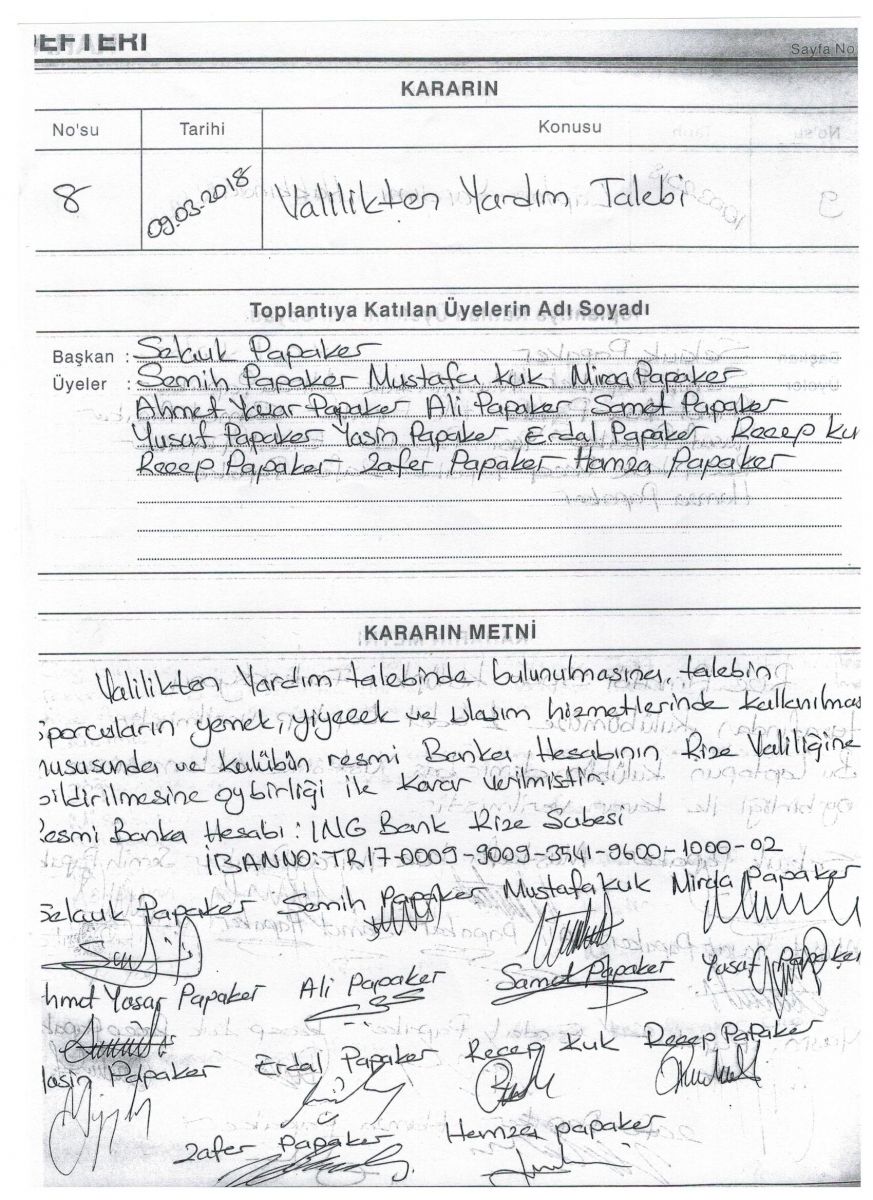 DEFTERİ
Sayfa No
KARARIN
No'su Tarihi Konusu
8 09.03.2018 Valilikten Yardım Talebi
Toplantıya Katılan Üyelerin Adı Soyadı
Başkan : Selçuk Papaker
Üyeler : Semih Papaker Mustafa Kuk Miraç Papaker
Ahmet Yaşar Papaker Ali Papaker Samet Papaker
Yusuf Papaker Yasin Papaker Erdal Papaker Recep Ku
Recep Papaker Zafer Papaker Hamza Papaker
KARARIN METNİ
Valilikten Yardım talebinde bulunulmasına, talebin
sporcuların yemek, yiyecek ve ulaşım hizmetlerinde kullanılmas
hususunda ve kulübün resmi Banka Hesabının Rize Valiliğine
bildirilmesine oybirliği ile karar verilmiştir.
Resmi Banka Hesabı : ING Bank Rize Şubesi
İBANNO: TR17-0009-9009-3541-9600-1000-02
Selçuk Papaker Semih Papaker Mustafa Kuk Miraç Papaker
Ahmet Yaşar Papaker Ali Papaker Samet Papaker Yusuf Papaker
Yasin Papaker Erdal Papaker Recep Kuk Recep Papaker
Zafer Papaker Hamza Papaker